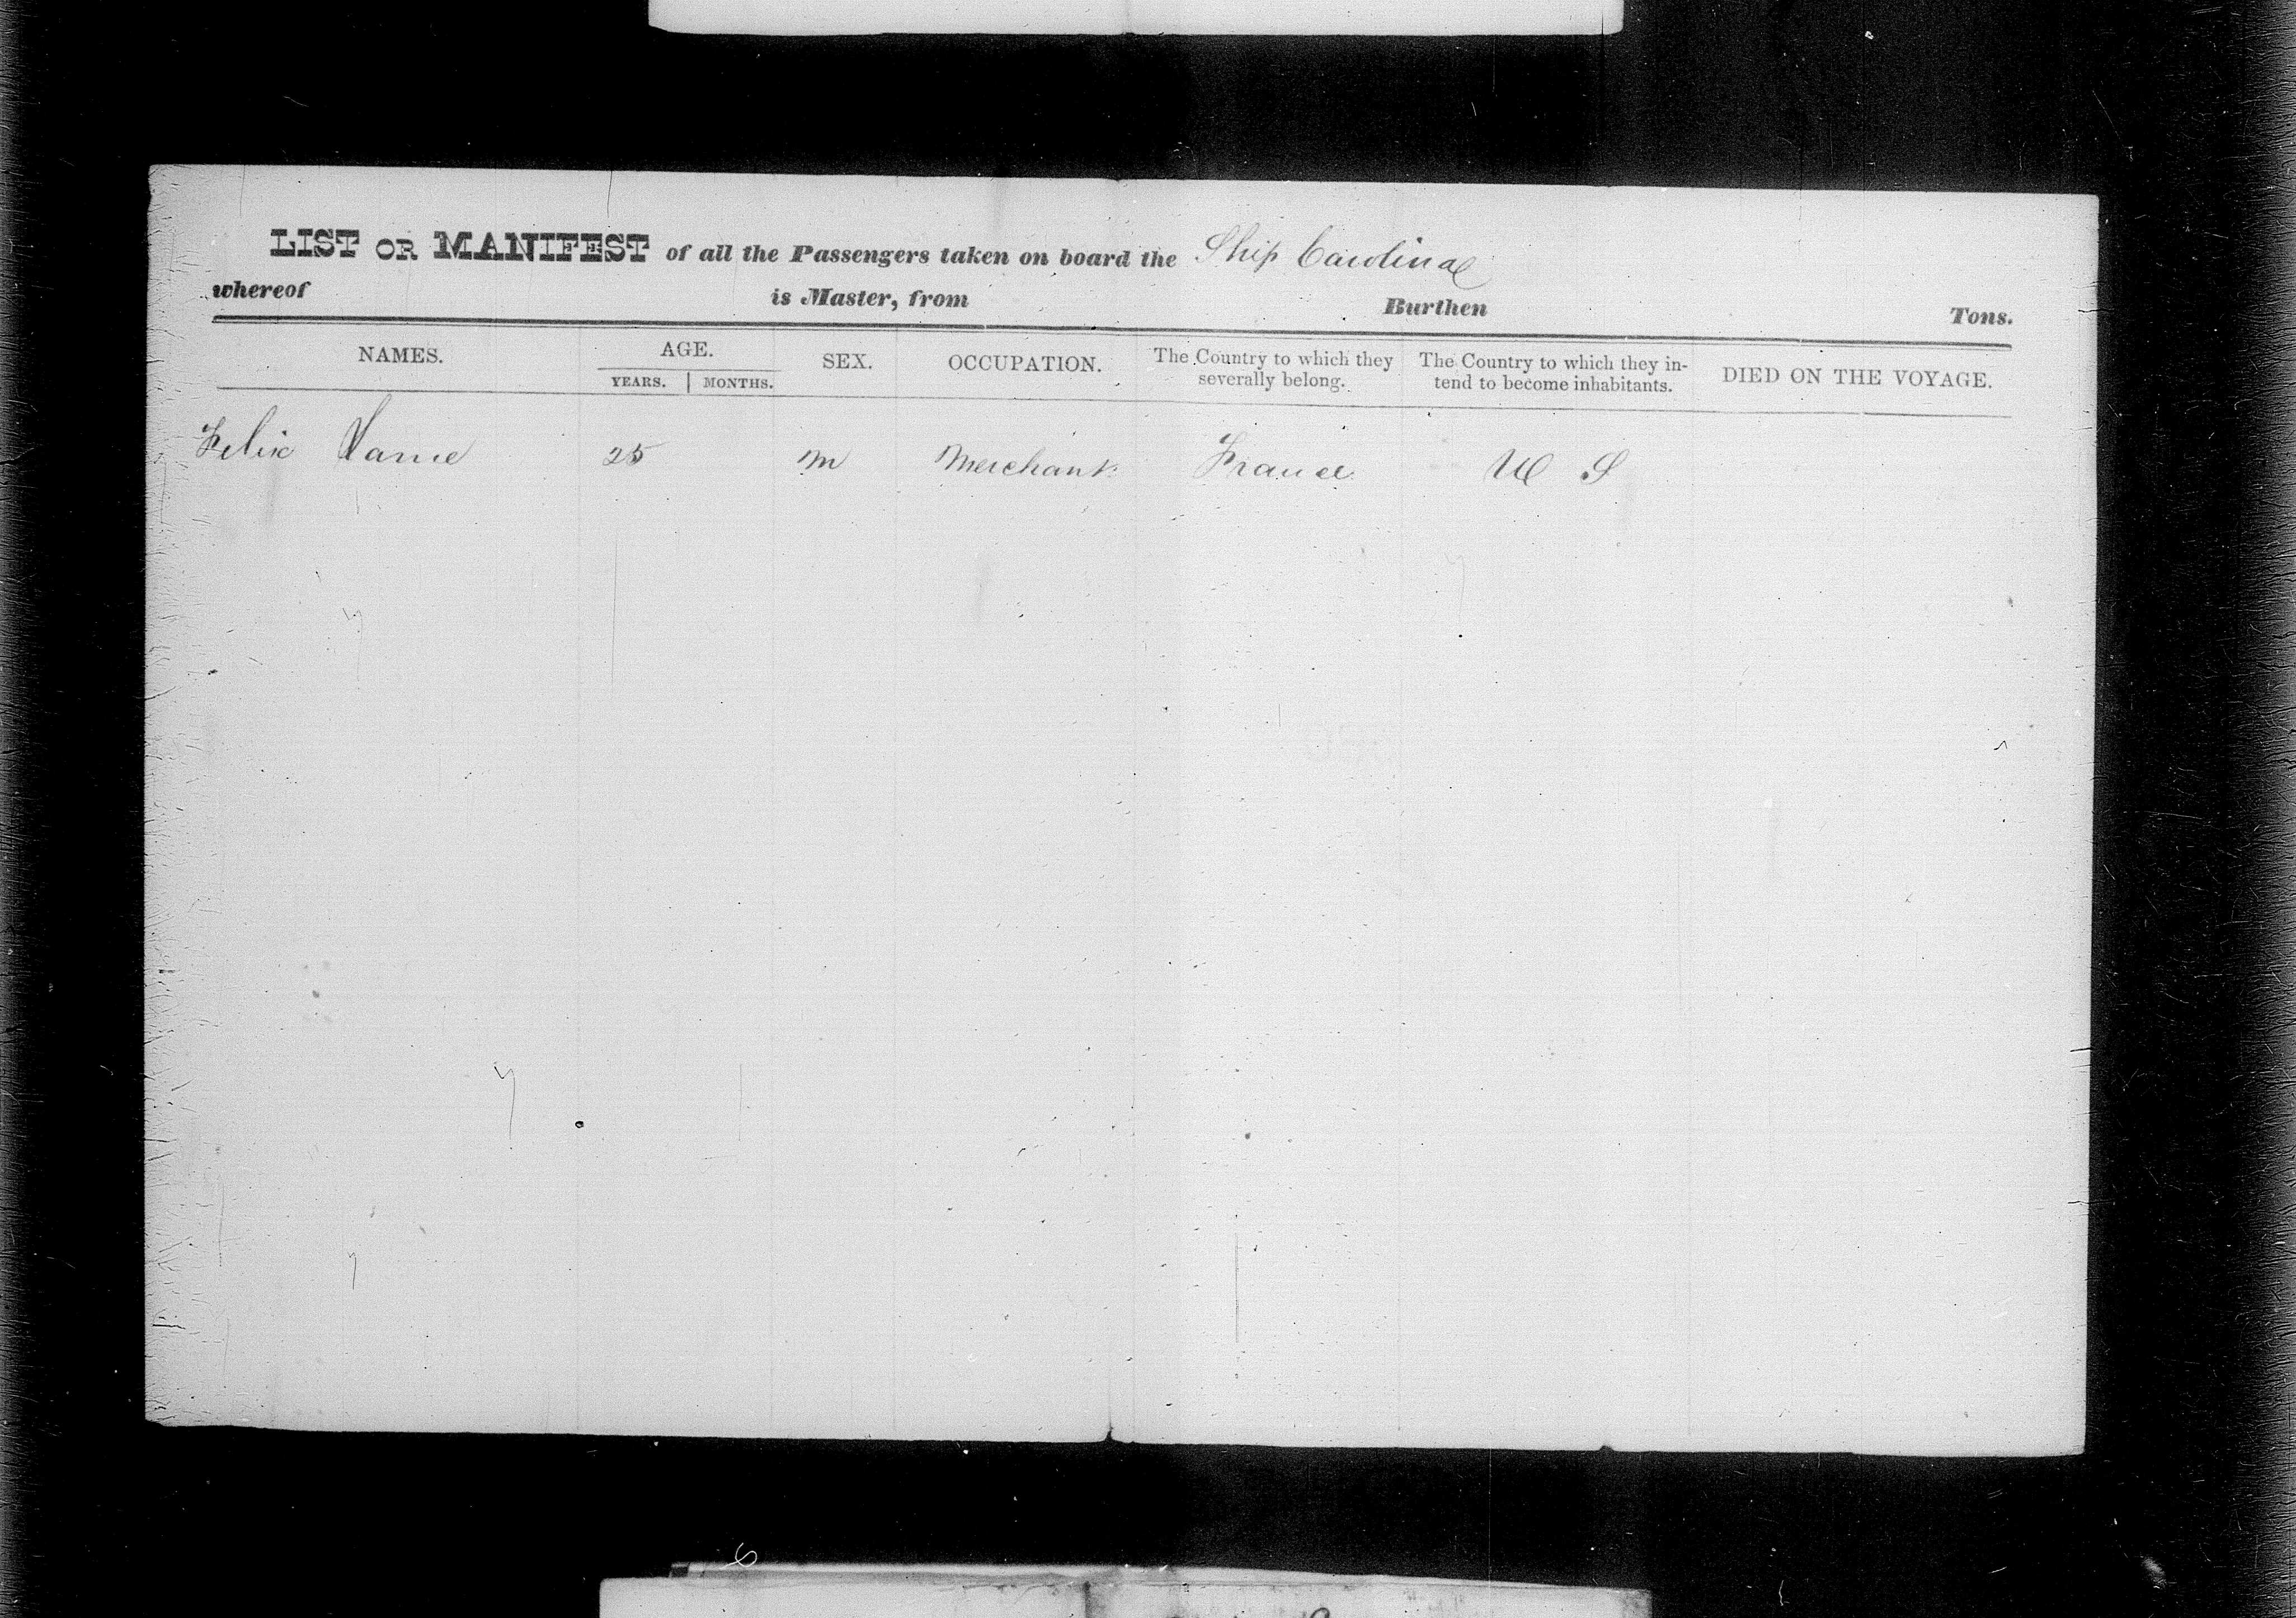 LIST OR MANIFEST of all the Passengers taken on board the Ship Carolina
whereof is Master, from Burthen Tons.
NAMES. AGE. SEX. OCCUPATION. The Country to which they severally belong. The Country to which they intend to become inhabitants. DIED ON THE VOYAGE.
YEARS. MONTHS.
Felix 25 m Merchant France U S